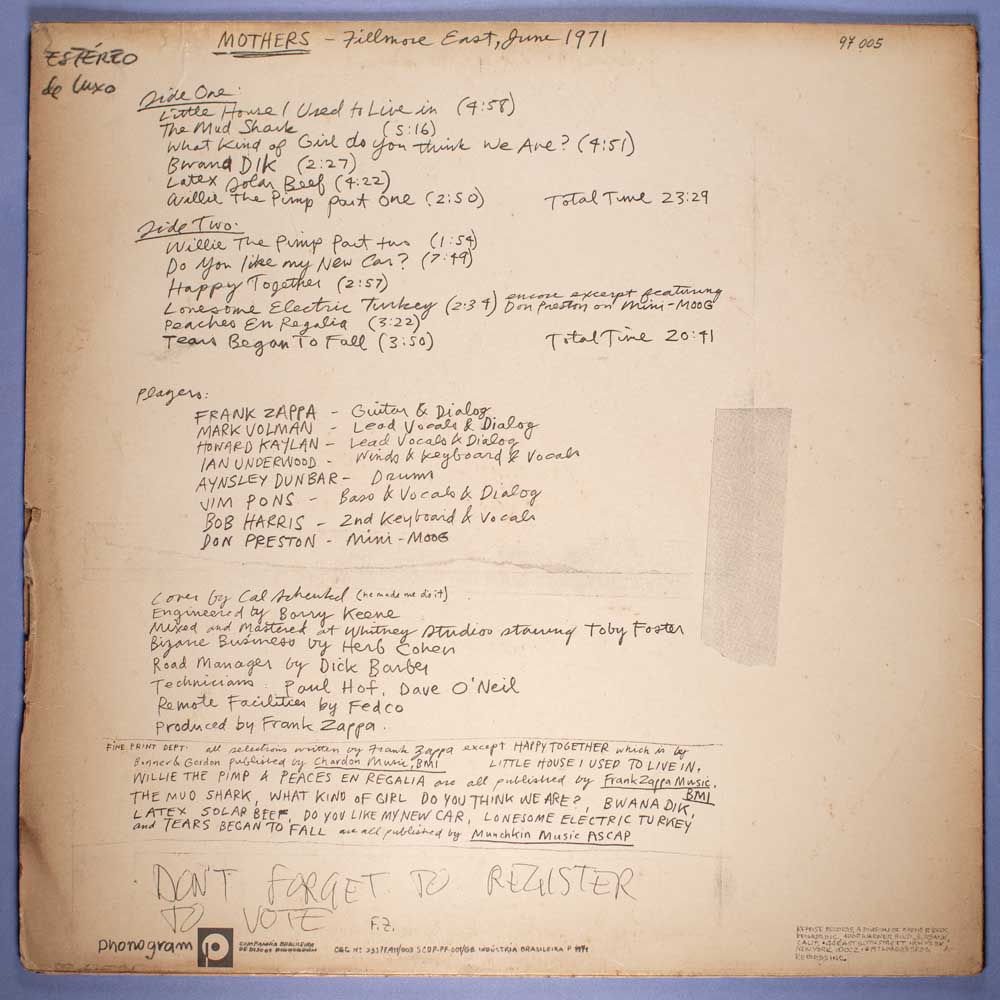 ESTÉREO
de luxo
MOTHERS - Fillmore East, June 1971
97 005
Side One:
Little House I Used to Live in (4:58)
The Mud Shark (5:16)
What Kind of Girl do you think We Are? (4:51)
Bwana DIK (2:27)
Latex Solar Beef (4:22)
Willie The Pimp part One (2:50) Total Time 23:29
Side Two:
Willie The Pimp Part two (1:54)
Do You like my New Car? (7:49)
Happy Together (2:57)
Lonesome Electric Turkey (2:34) encore excerpt featuring
Don Preston on Mini-MOOG
Peaches En Regalia (3:22)
Tears Began To Fall (3:50) Total Time 20:41
Players:
FRANK ZAPPA - Guitar & Dialog
MARK VOLMAN - Lead Vocals & Dialog
HOWARD KAYLAN - Lead Vocals & Dialog
IAN UNDERWOOD - Winds & Keyboard & Vocals
AYNSLEY DUNBAR - Drums
JIM PONS - Bass & Vocals & Dialog
BOB HARRIS - 2nd Keyboard & Vocals
DON PRESTON - Mini-MOOG
Cover by Cal Schenkel (he made me do it)
Engineered by Barry Keene
Mixed and Mastered at Whitney Studios starring Toby Foster
Bizarre Business by Herb Cohen
Road Manager by Dick Barber
Technicians Paul Hof, Dave O'Neil
Remote Facilities by Fedco
Produced by Frank Zappa.
FINE PRINT DEPT: all selections written by Frank Zappa except HAPPY TOGETHER which is by
Bonner & Gordon published by Chardon Music, BMI LITTLE HOUSE I USED TO LIVE IN,
WILLIE THE PIMP & PEACES EN REGALIA are all published by Frank Zappa Music,
BMI
THE MUD SHARK, WHAT KIND OF GIRL DO YOU THINK WE ARE?, BWANA DIK,
LATEX SOLAR BEEF, DO YOU LIKE MY NEW CAR, LONESOME ELECTRIC TURKEY
and TEARS BEGAN TO FALL are all published by Munchkin Music ASCAP
DON'T FORGET TO REGISTER
TO VOTE F.Z.
phonogram
COMPANHIA BRASILEIRA
DE DISCOS PHONOGRAM
INDÚSTRIA BRASILEIRA P 1971
REPRISE RECORDS, A DIVISION OF